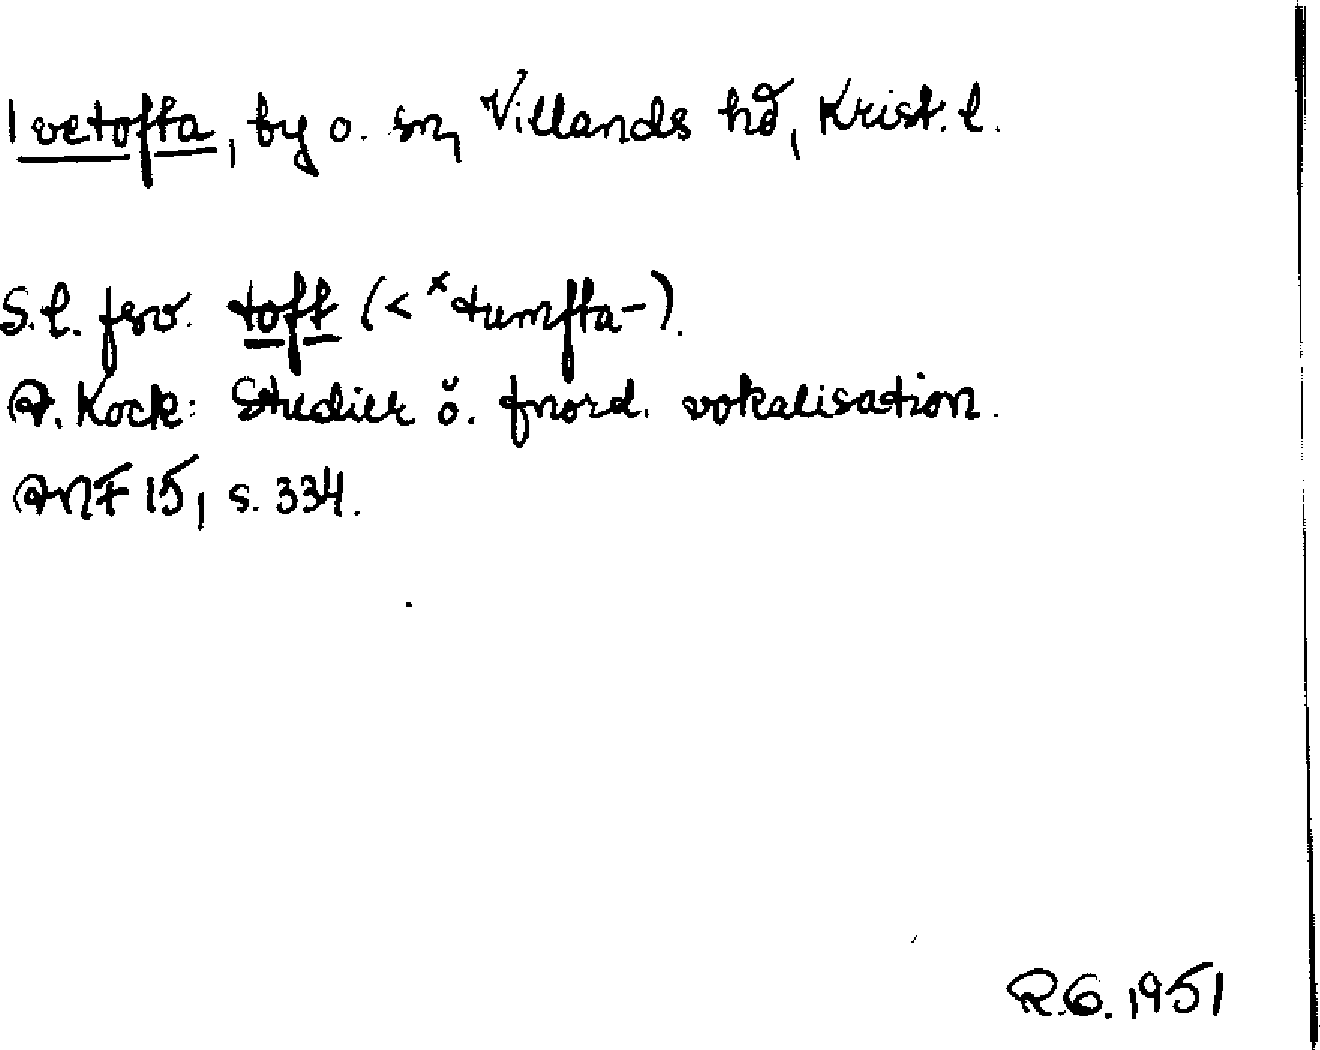 Ivetofta, by o. sn, Villands hd, Krist. l.
S.l. fsv. toft (< *tumfta-).
A. Kock: Studier ö. fnord. vokalisation.
ANF 15, s. 334.
R.G. 1951